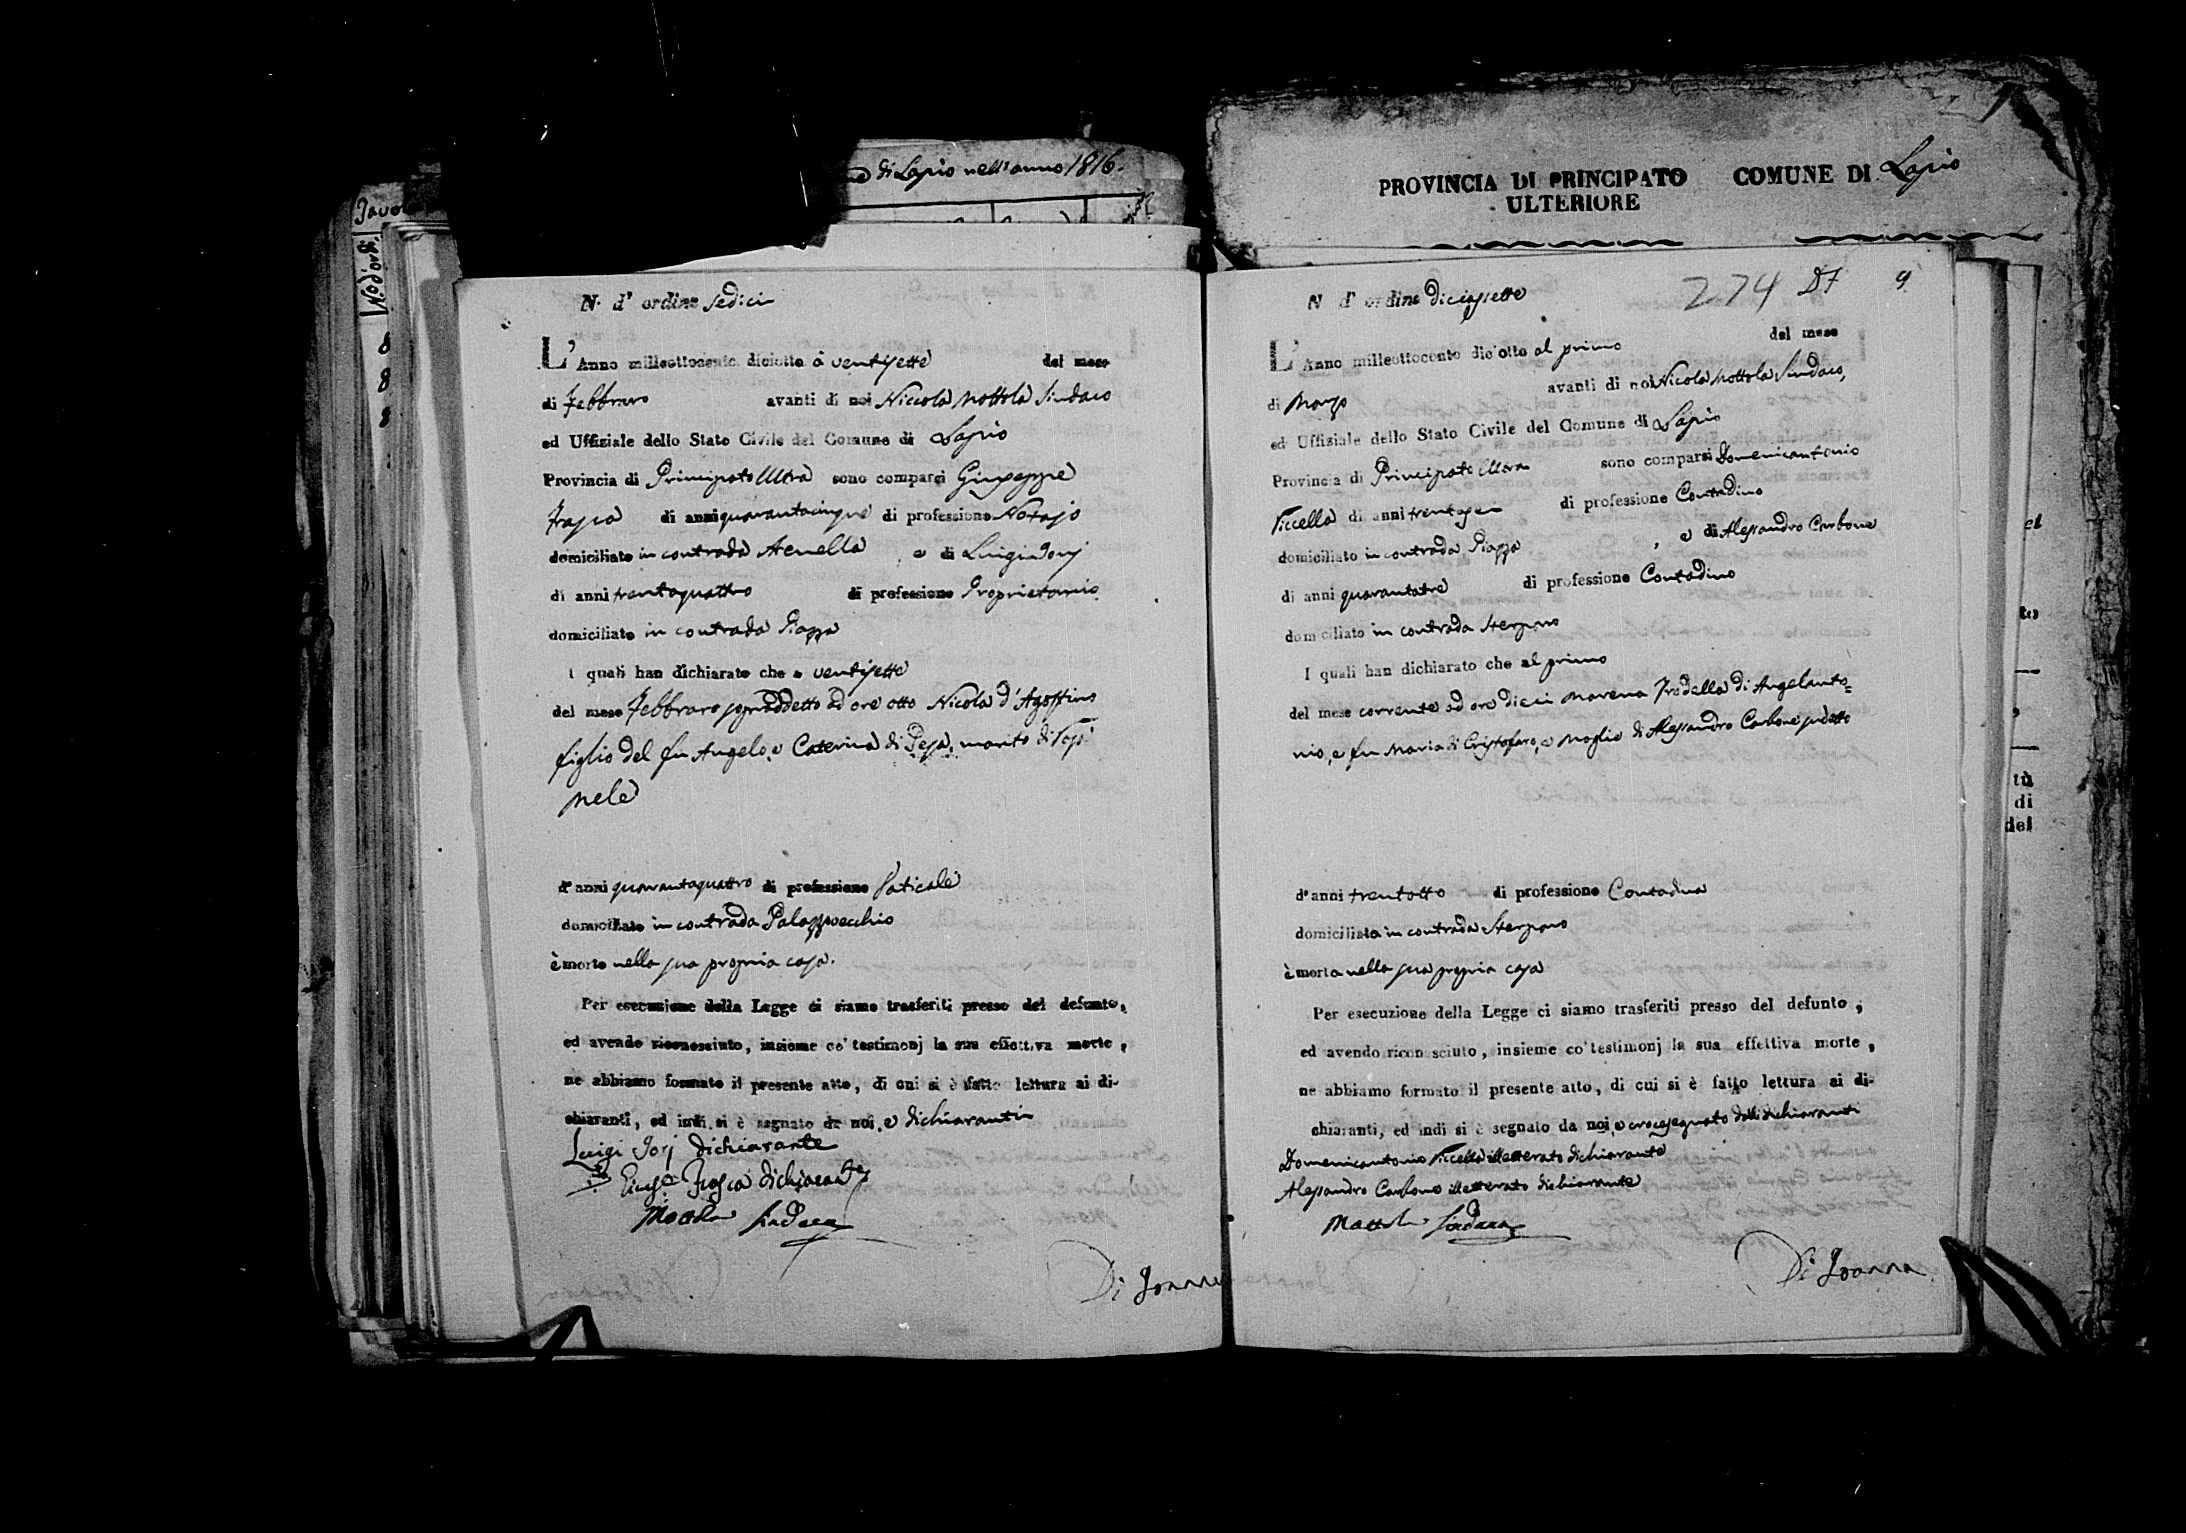 di Lapio nell'anno 1816.
N.o d'ord.
8
8
8
PROVINCIA DI PRINCIPATO
ULTERIORE
COMUNE DI Lapio
N. d' ordine Sedici
L'Anno milleottocento diciotto a ventisette del mese
di Febbraro avanti di noi Niccola Mottola Sindaco
ed Uffiziale dello Stato Civile del Comune di Lapio
Provincia di Principato Ultra sono comparsi Giuseppe
Frasca di anni quarantacinque di professione Notajo
domiciliato in contrada Acnella, e di Luigi Jorj
di anni trentaquattro di professione Proprietario
domiciliato in contrada Piazza
I quali han dichiarato che a ventisette
del mese Febbraro sopraddetto ad ore otto Nicola d'Agostino
figlio del fu Angelo, e Caterina di Pesa, marito di
d'anni quarantaquattro di professione Vaticale
domiciliato in contrada Palazzovecchio
è morto nella sua propria casa.
Per esecuzione della Legge ci siamo trasferiti presso del defunto,
ed avendo riconosciuto, insieme co' testimonj la sua effettiva morte,
ne abbiamo formato il presente atto, di cui si è fatto lettura ai di-
chiaranti, ed indi si è segnato da noi, e dichiaranti
Luigi Jorj dichiarante
Gius.e Frasca dichiarante
Mottola Sindaco
Di Joanna
274 D7 9
N d' ordine diciassette
L'Anno milleottocento diciotto al primo del mese
di Marzo avanti di noi Nicola Mottola Sindaco,
ed Uffiziale dello Stato Civile del Comune di Lapio
Provincia di Principato Ultra sono comparsi Domenicantonio
Piccella di anni trentasei di professione Contadino
domiciliato in contrada Piazza, e di Alessandro Carbone
di anni quarantatre di professione Contadino
domiciliato in contrada Sterparo
I quali han dichiarato che al primo
del mese corrente ad ore dieci Marena Trodella di Angelanto=
nio, e fu Maria di Cristofaro, e moglie di Alessandro Carbone sudetto
d'anni trentotto di professione Contadina
domiciliata in contrada Sterparo
è morta nella sua propria casa
Per esecuzione della Legge ci siamo trasferiti presso del defunto,
ed avendo riconosciuto, insieme co' testimonj la sua effettiva morte,
ne abbiamo formato il presente atto, di cui si è fatto lettura ai di-
chiaranti, ed indi si è segnato da noi, e crocesegnato dalli dichiaranti
Domenicantonio Piccella illetterato dichiarante
Alessandro Carbone illetterato dichiarante
Mottola Sindaco
Di Joanna